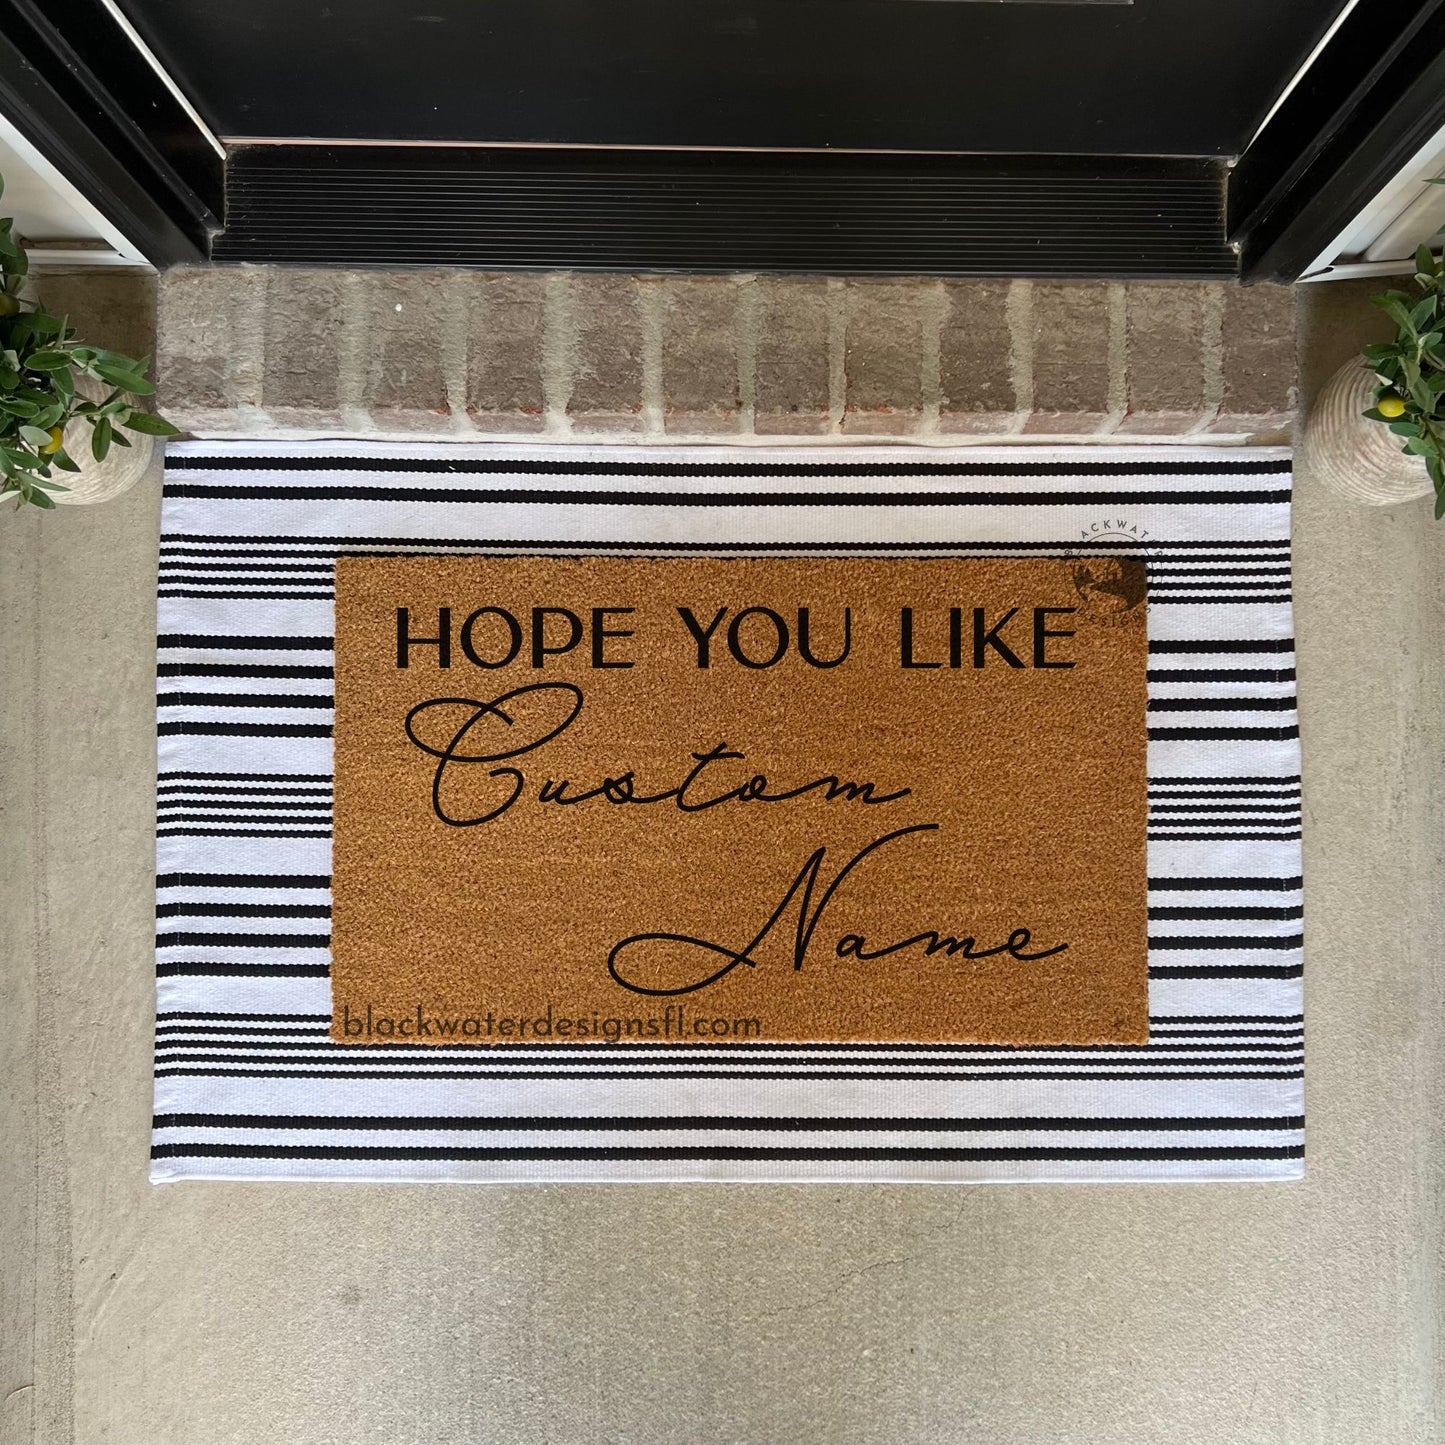 BLACKWATER
HOPE YOU LIKE
DESIGNS
Custom
Name
blackwaterdesignsfl.com